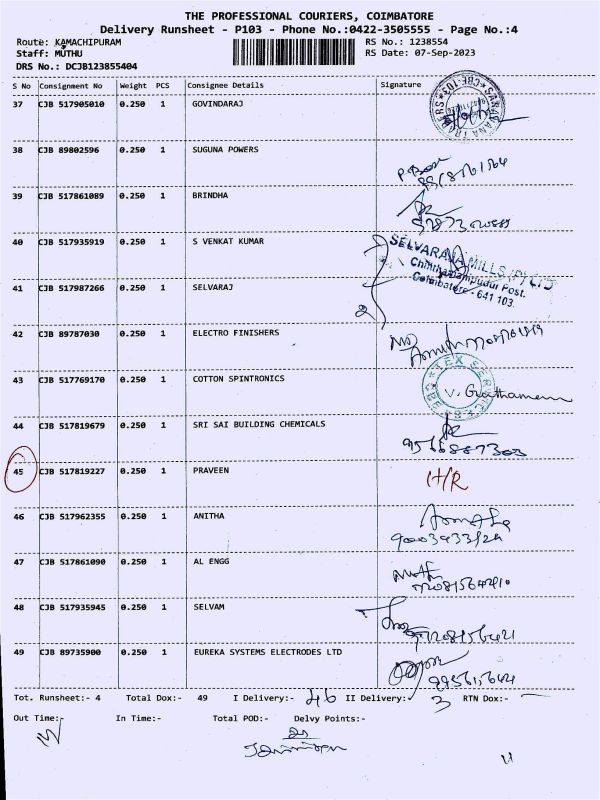 THE PROFESSIONAL COURIERS, COIMBATORE
Delivery Runsheet - P103 - Phone No.:0422-3505555 - Page No.:4
Route: KAMACHIPURAM RS No.: 1238554
Staff: MUTHU RS Date: 07-Sep-2023
DRS No.: DCJB123855404
S No Consignment No Weight PCS Consignee Details Signature
37 CJB 517905010 0.250 1 GOVINDARAJ
38 CJB 89802596 0.250 1 SUGUNA POWERS
39 CJB 517861089 0.250 1 BRINDHA
40 CJB 517935919 0.250 1 S VENKAT KUMAR
SELVARAJA MILLS (P) LTD
Chinthamanipudur Post.
Coimbatore - 641 103.
41 CJB 517987266 0.250 1 SELVARAJ
2
42 CJB 89787030 0.250 1 ELECTRO FINISHERS
43 CJB 517769170 0.250 1 COTTON SPINTRONICS
44 CJB 517819679 0.250 1 SRI SAI BUILDING CHEMICALS
45 CJB 517819227 0.250 1 PRAVEEN
46 CJB 517962355 0.250 1 ANITHA
47 CJB 517861090 0.250 1 AL ENGG
48 CJB 517935945 0.250 1 SELVAM
49 CJB 89735900 0.250 1 EUREKA SYSTEMS ELECTRODES LTD
Tot. Runsheet:- 4 Total Dox:- 49 I Delivery:- 46 II Delivery:- 3 RTN Dox:-
Out Time:- In Time:- Total POD:- Delvy Points:-